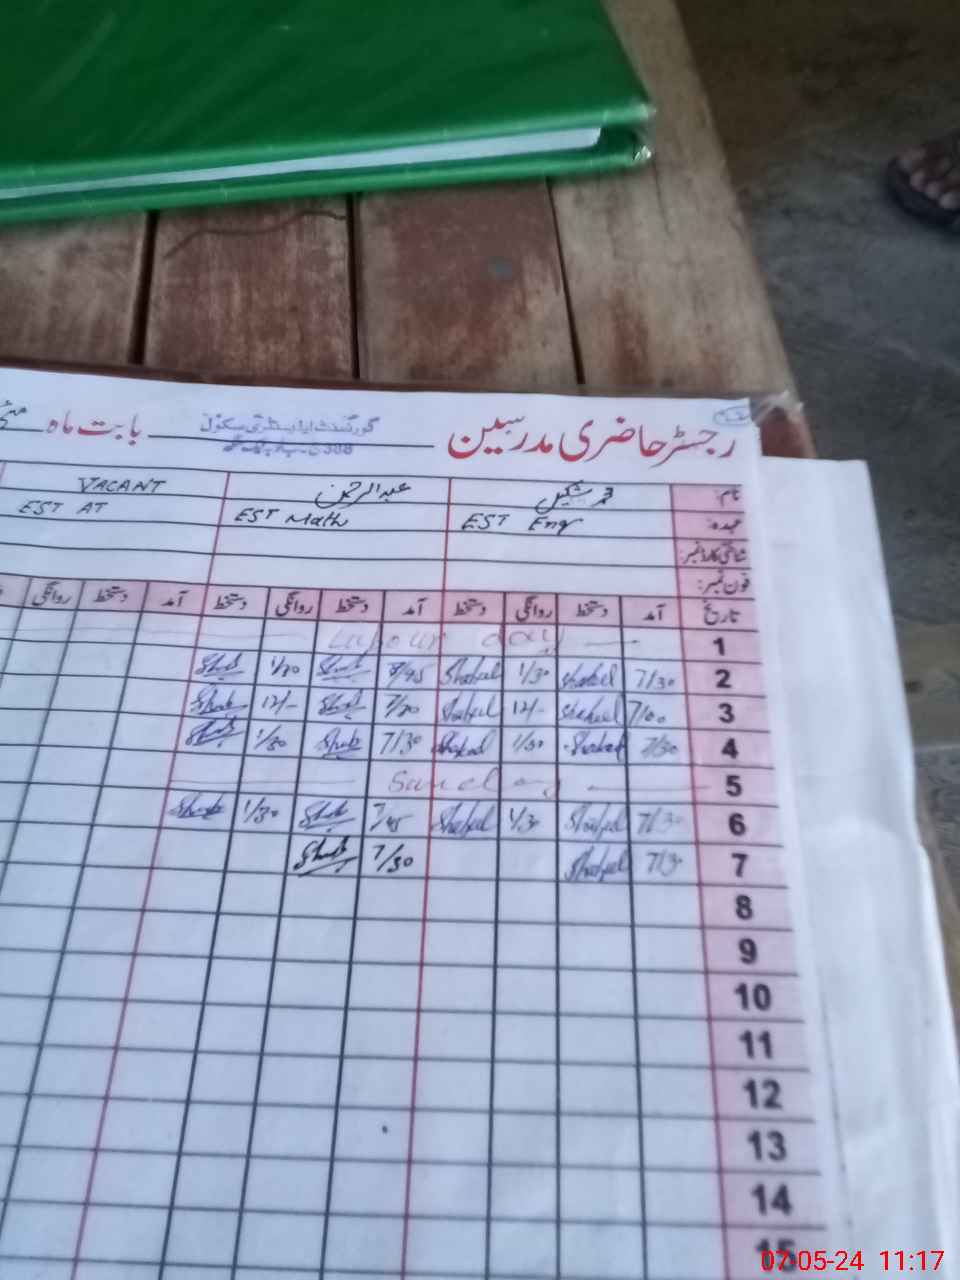 رجسٹر حاضری مدرسین گورنمنٹ ایلیمنٹری سکول بابت ماہ مئی
نام: محمد شکیل عبدالرحمٰن VACANT
عہدہ: EST Eng EST Math EST AT
شناختی کارڈ نمبر:
فون نمبر:
تاریخ آمد دستخط روانگی دستخط آمد دستخط روانگی دستخط آمد دستخط روانگی
1 Labour day
2 7/30 Shakeel 1/30 Shakeel 8/45 1/30
3 7/00 Shakeel 12/- Shakeel 7/30 12/-
4 7/30 Shakeel 1/30 Shakeel 7/30 1/30
5 Sunday
6 7/30 Shakeel 1/30 Shakeel 7/45 1/30
7 7/30 Shakeel 7/30
8
9
10
11
12
13
14
15
07-05-24 11:17